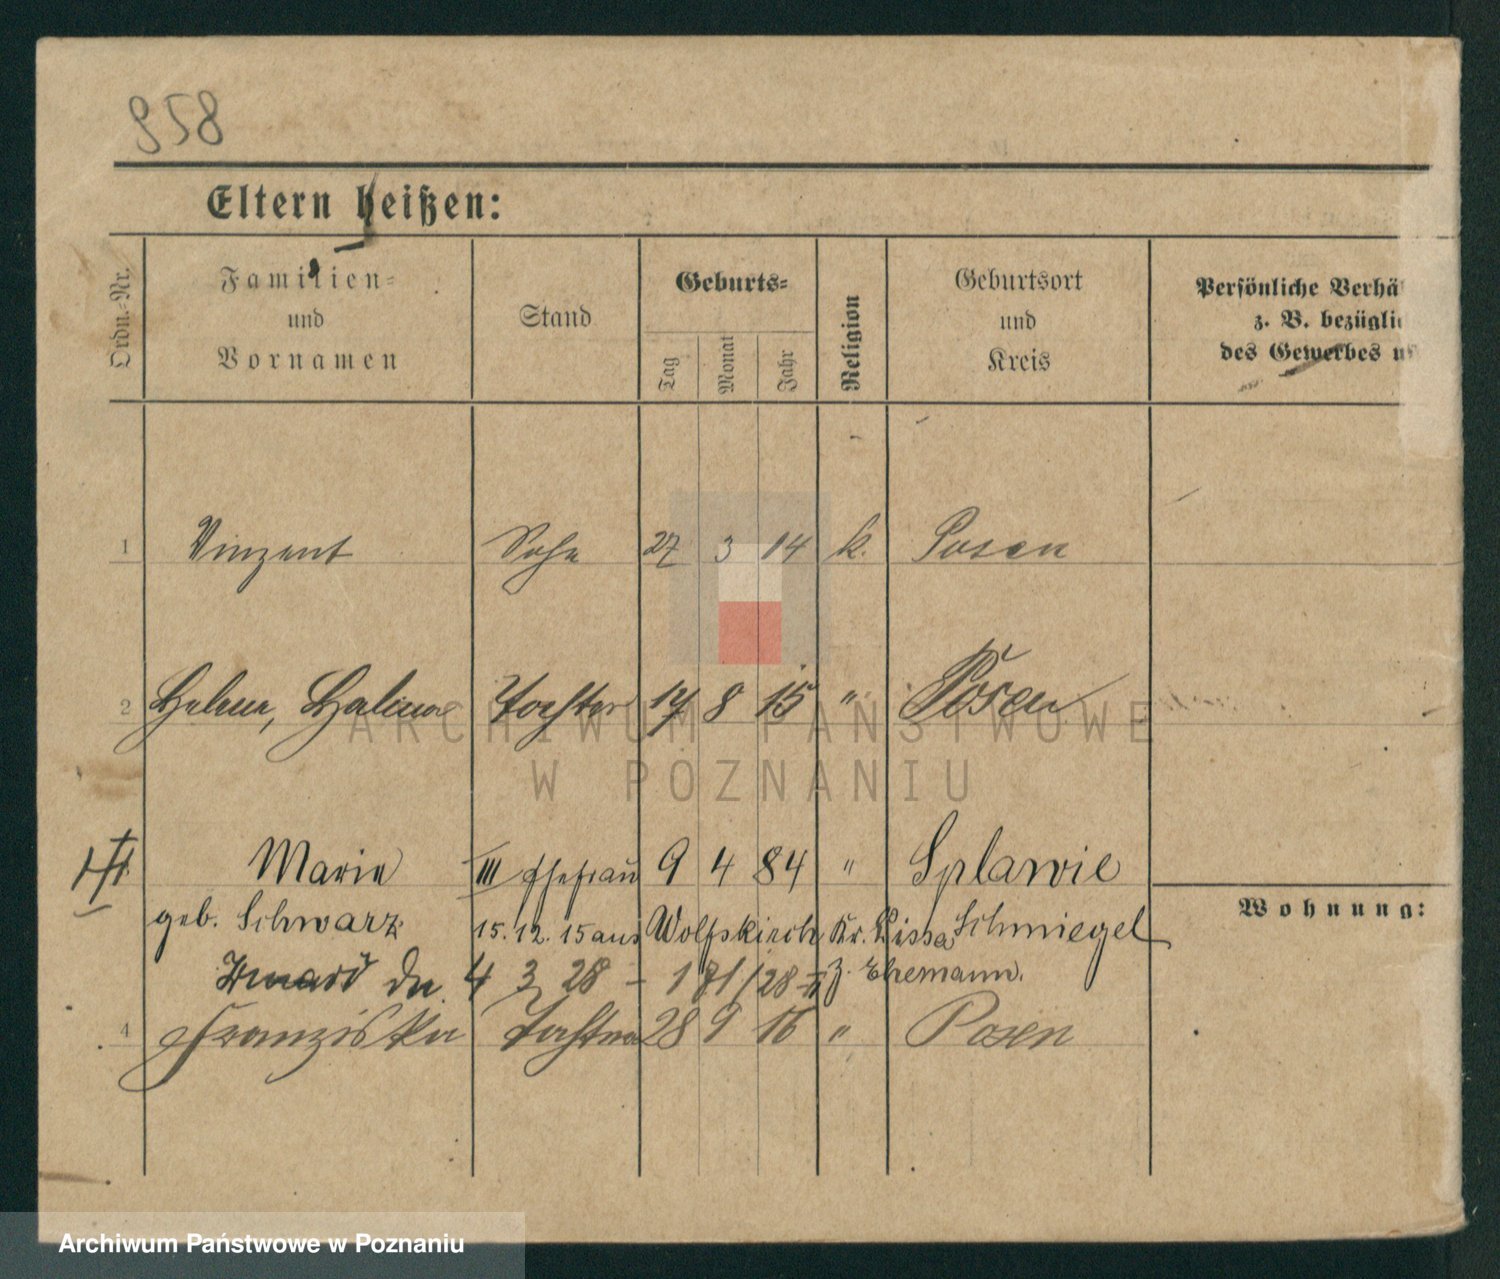 958
Eltern heißen:
Ordn.-Nr.
Familien-
und
Vornamen
Stand
Geburts-
Tag
Monat
Jahr
Religion
Geburtsort
und
Kreis
Persönliche Verhä
z. B. bezügli
des Gewerbes u
1 Vinzent Sohn 27 3 14 k. Posen
2 Helena, Halina Tochter 17 8 15 " Posen
Marie III Ehefrau 9 4 84 " Splawie
geb. Schwarz 15.12.15 aus Wolfskirch Kr. Lissa Schmiegel
4 3 28 z. Ehemann.
4 Franziska Tochter 28 9 16 " Posen
Wohnung:
ARCHIWUM PAŃSTWOWE
W POZNANIU
Archiwum Państwowe w Poznaniu